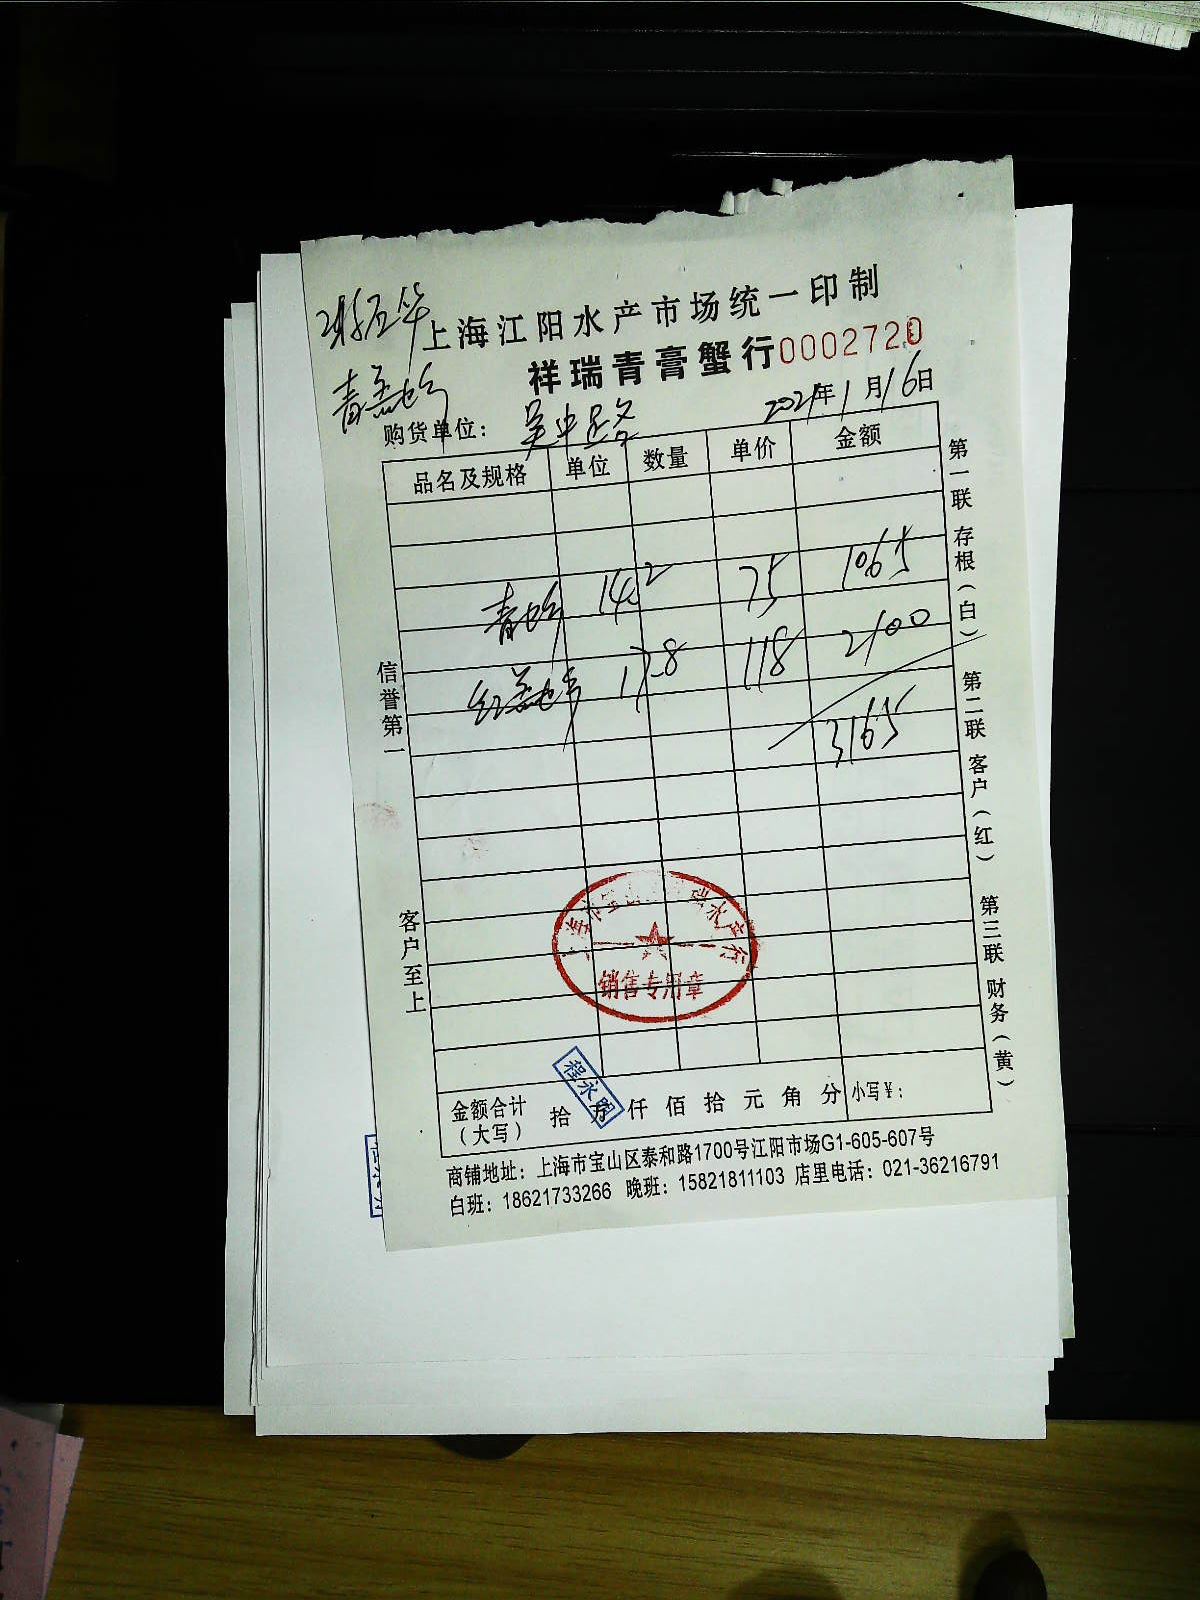 上海江阳水产市场统一印制
祥瑞青膏蟹行0002720
购货单位：吴中路 2021年1月16日
品名及规格 单位 数量 单价 金额
青 14.2 75 1065
红膏 17.8 118 2100
3165
金额合计（大写） 拾万仟佰拾元角分 小写¥：
商铺地址：上海市宝山区泰和路1700号江阳市场G1-605-607号
白班：18621733266 晚班：15821811103 店里电话：021-36216791
信誉第一
客户至上
第一联 存根（白） 第二联 客户（红） 第三联 财务（黄）
上海市宝山 水产行
销售专用章
程永